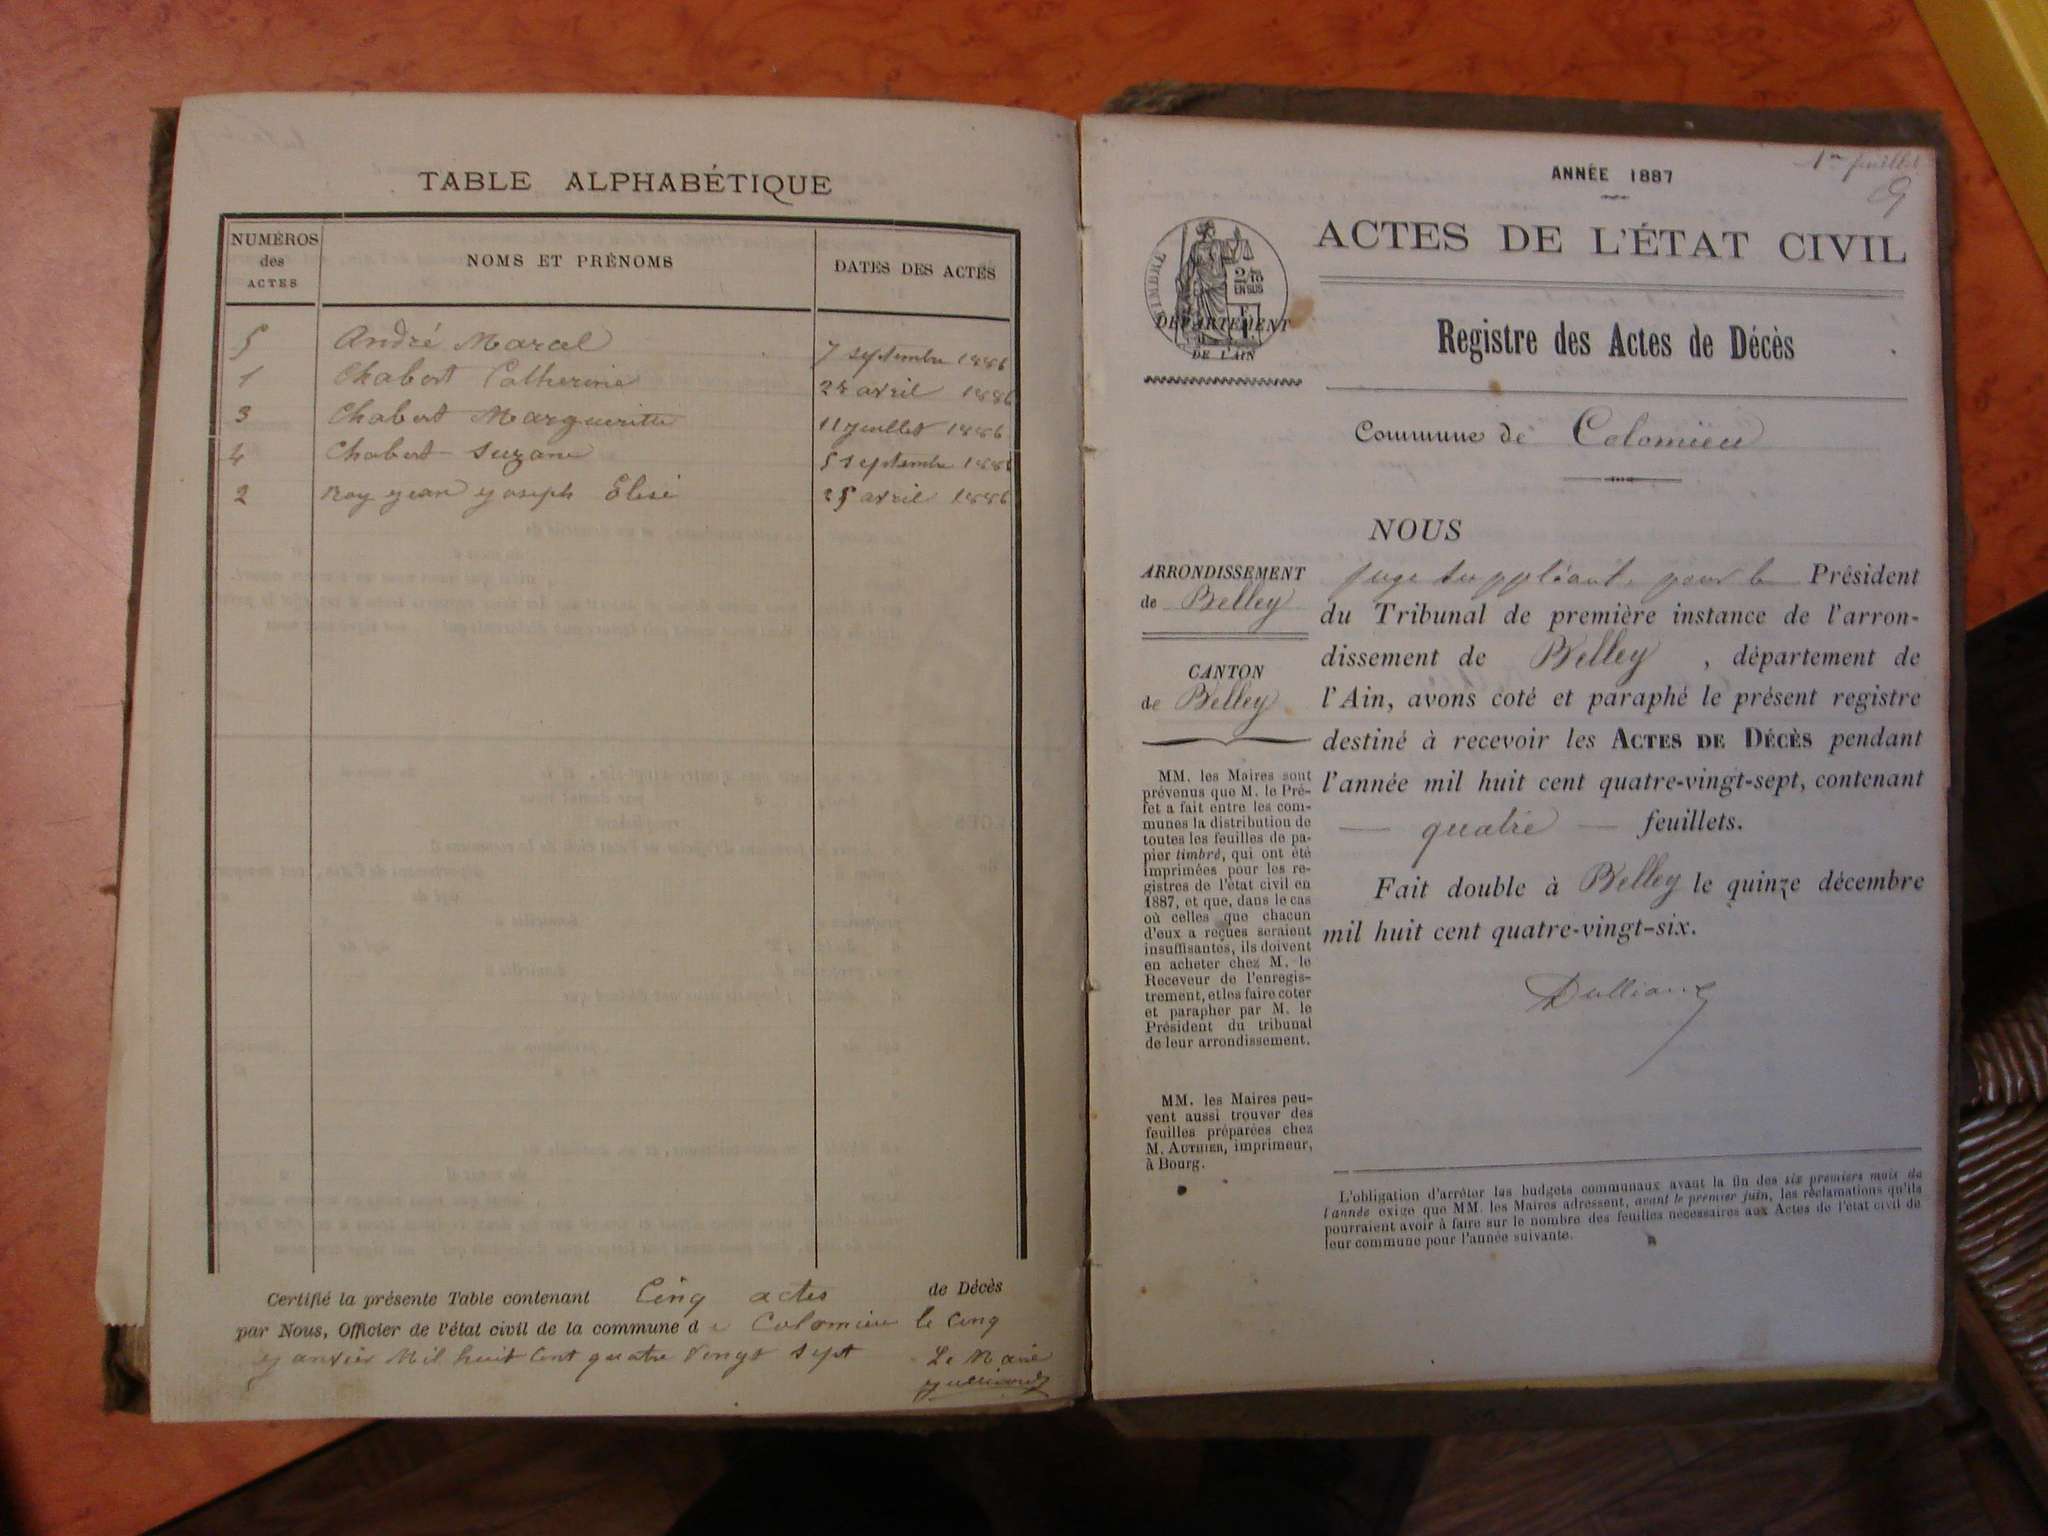 TABLE ALPHABÉTIQUE
NUMÉROS des ACTES
NOMS ET PRÉNOMS
DATES DES ACTES
5 André Marcel 7 septembre 1886
1 Chabert Catherine 24 avril 1886
3 Chabert Margueritte 11 juillet 1886
4 Chabert Suzane 5 septembre 1886
2 Roy jean joseph Elisé 25 avril 1886
Certifié la présente Table contenant Cinq actes de Décès
par Nous, Officier de l'état civil de la commune de Colomieu le Cinq
janvier Mil huit Cent quatre Vingt sept Le Maire
1er feuillet
ANNÉE 1887
ACTES DE L'ÉTAT CIVIL
TIMBRE
2/10 EN SUS
DÉPARTEMENT
DE L'AIN
Registre des Actes de Décès
Commune de Colomieu
NOUS
ARRONDISSEMENT
de Belley
CANTON
de Belley
MM. les Maires sont
prévenus que M. le Pré-
fet a fait entre les com-
munes la distribution de
toutes les feuilles de pa-
pier timbré, qui ont été
imprimées pour les re-
gistres de l'état civil en
1887, et que, dans le cas
où celles que chacun
d'eux a reçues seraient
insuffisantes, ils doivent
en acheter chez M. le
Receveur de l'enregis-
trement, et les faire coter
et parapher par M. le
Président du tribunal
de leur arrondissement.
MM. les Maires peu-
vent aussi trouver des
feuilles préparées chez
M. AUTHIER, imprimeur,
à Bourg.
juge suppléant, pour le Président
du Tribunal de première instance de l'arron-
dissement de Belley, département de
l'Ain, avons coté et paraphé le présent registre
destiné à recevoir les ACTES DE DÉCÈS pendant
l'année mil huit cent quatre-vingt-sept, contenant
— quatre — feuillets.
Fait double à Belley le quinze décembre
mil huit cent quatre-vingt-six.
L'obligation d'arrêter les budgets communaux avant la fin des six premiers mois de
l'année exige que MM. les Maires adressent, avant le premier juin, les réclamations qu'ils
pourraient avoir à faire sur le nombre des feuilles nécessaires aux Actes de l'état civil de
leur commune pour l'année suivante.